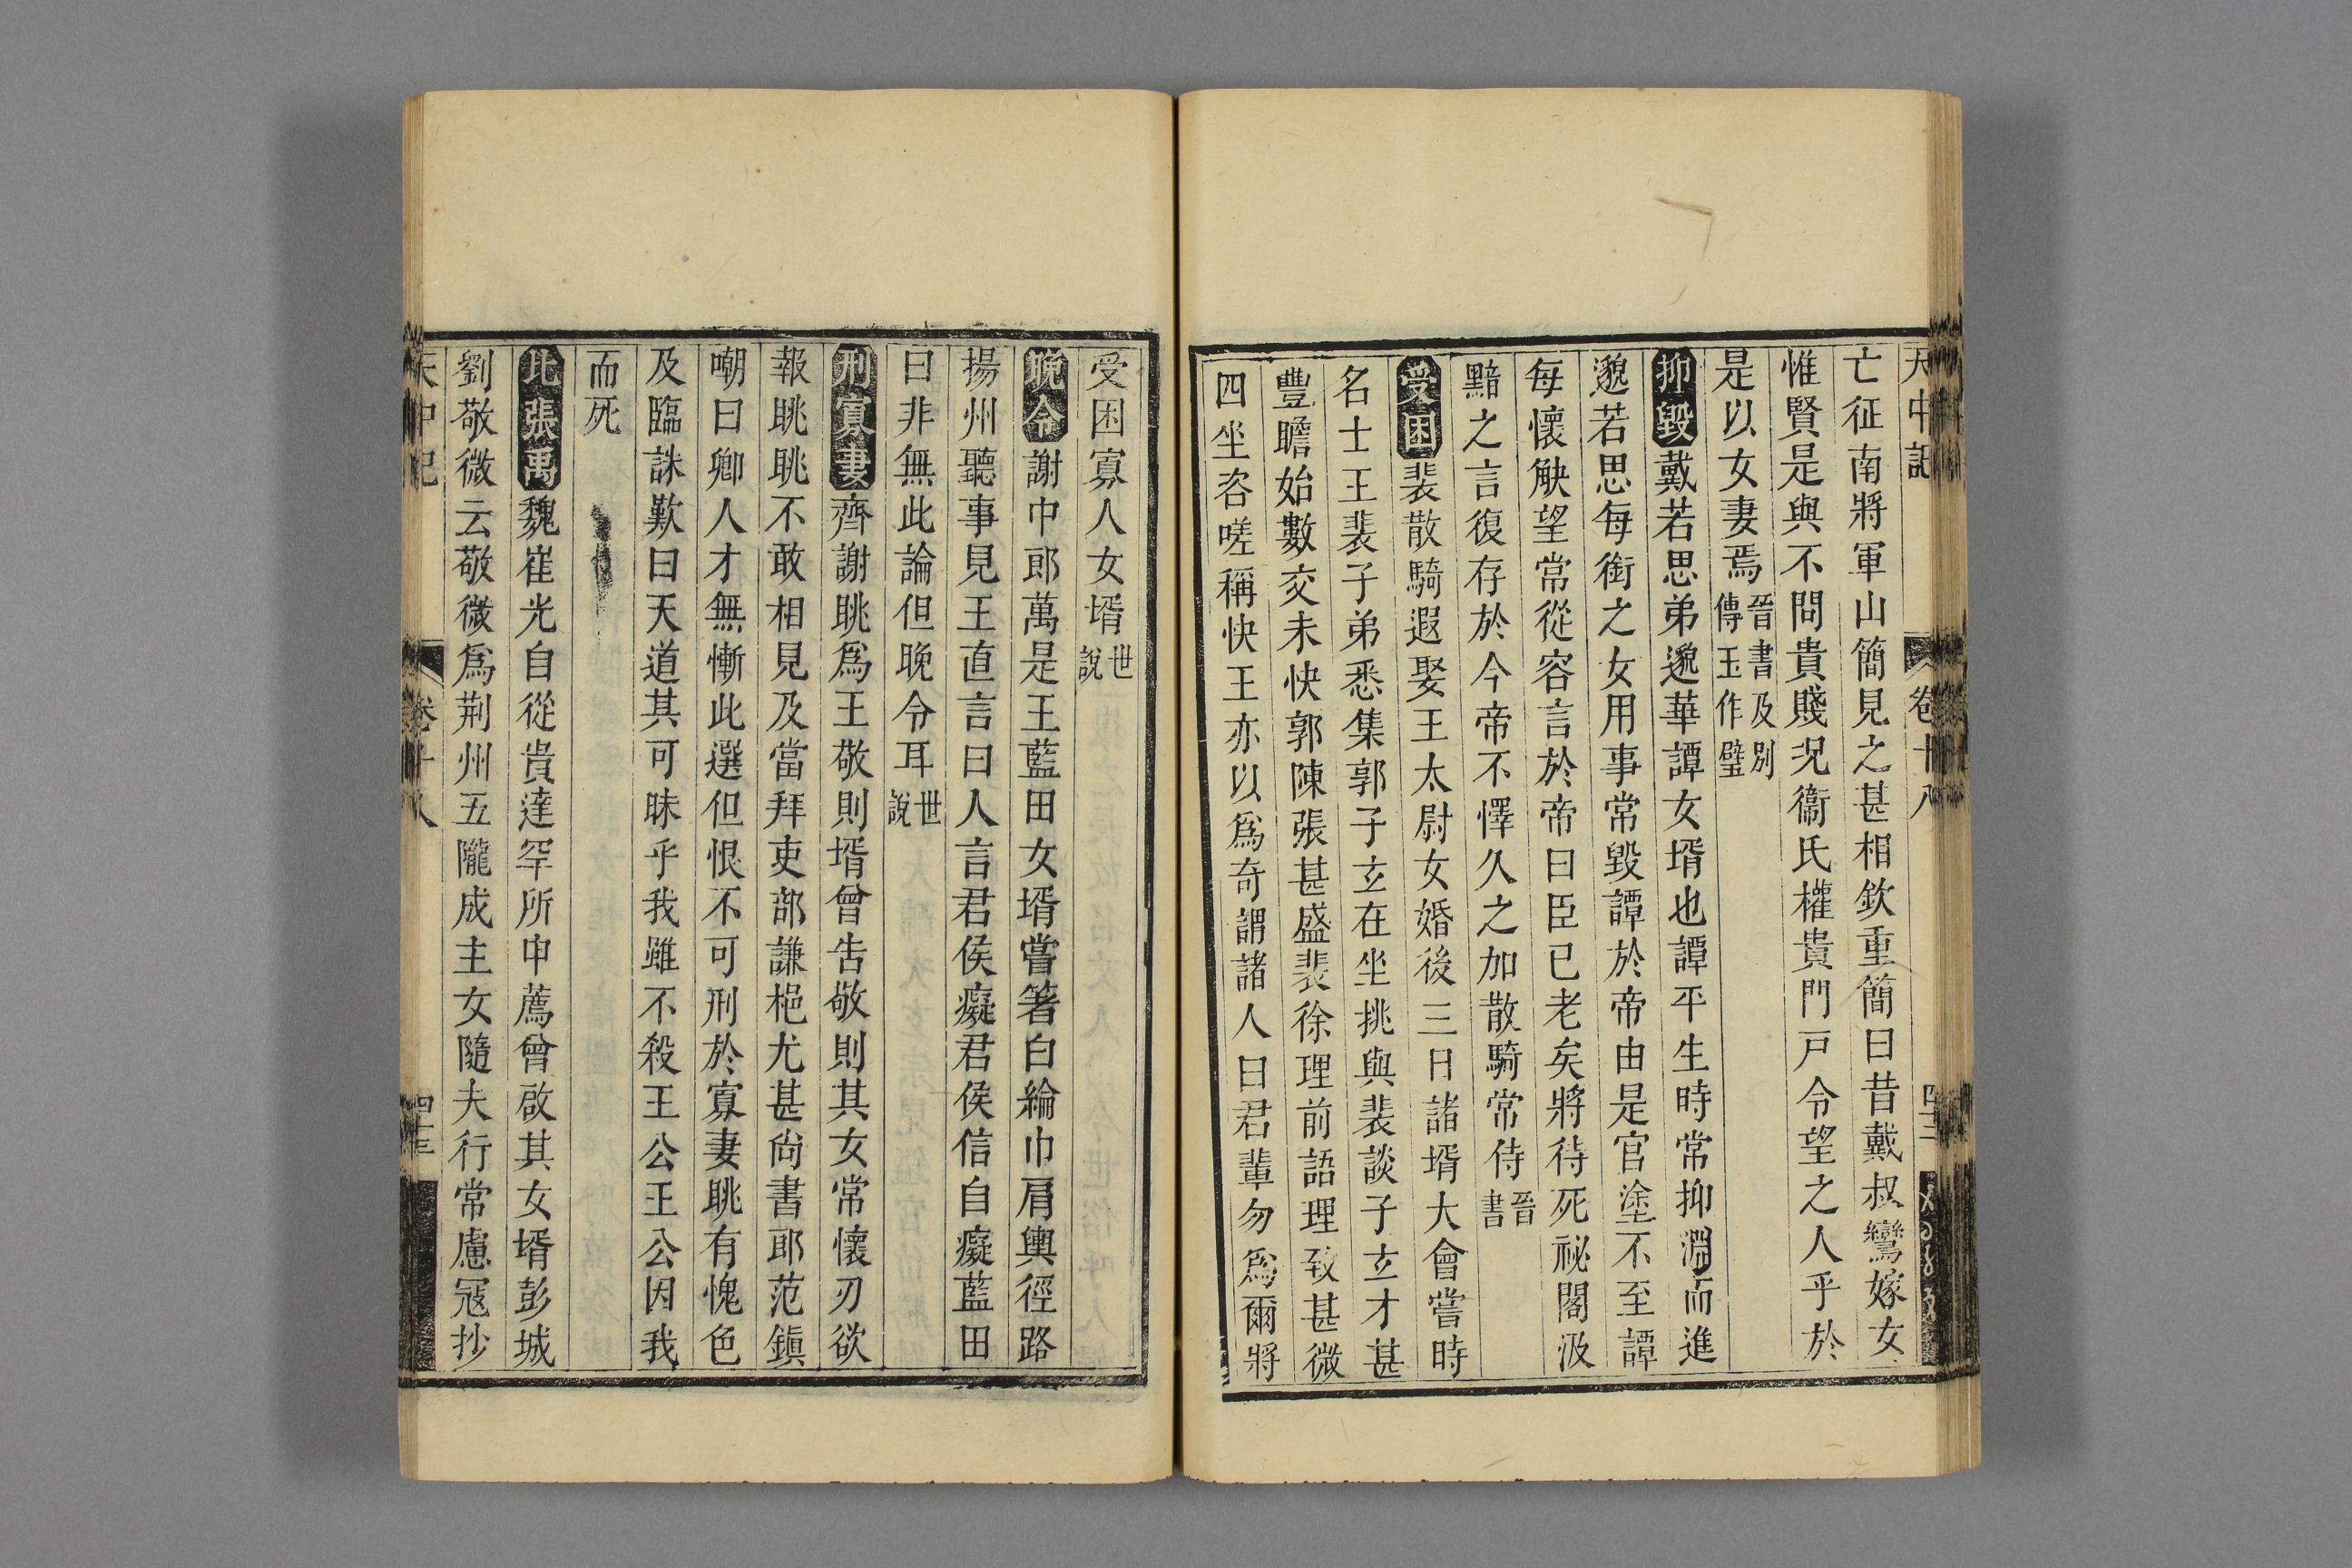 天中記 卷十八 四十二
亡征南將軍山簡見之甚相欽重簡曰昔戴叔鸞嫁女
惟賢是與不問貴賤况衞氏權貴門戸令望之人乎於
是以女妻焉晉書及別傳玉作璧
抑毀戴若思弟邈華譚女壻也譚平生時常抑淵而進
邈若思每銜之女用事常毀譚於帝由是官塗不至譚
每懷觖望常從容言於帝曰臣已老矣將待死祕閣汲
黯之言復存於今帝不懌久之加散騎常侍晉書
受困裴散騎遐娶王太尉女婚後三日諸壻大會嘗時
名士王裴子弟悉集郭子玄在坐挑與裴談子玄才甚
豐贍始數交未快郭陳張甚盛裴徐理前語理致甚微
四坐咨嗟稱快王亦以爲奇謂諸人曰君輩勿爲爾將
受困寡人女壻世說
晚令謝中郎萬是王藍田女壻嘗箸白綸巾肩輿徑路
揚州聽事見王直言曰人言君侯癡君侯信自癡藍田
曰非無此論但晚令耳世說
刑寡妻齊謝眺爲王敬則壻曾吿敬則其女常懷刃欲
報眺眺不敢相見及當拜吏部謙挹尤甚尙書郎范鎭
嘲曰卿人才無慚此選但恨不可刑於寡妻眺有愧色
及臨誅歎曰天道其可昧乎我雖不殺王公王公因我
而死
比張禹魏崔光自從貴達罕所申薦曾啟其女壻彭城
劉敬微云敬微爲荆州五隴戍主女隨夫行常慮寇抄
天中記 卷十八 四十三